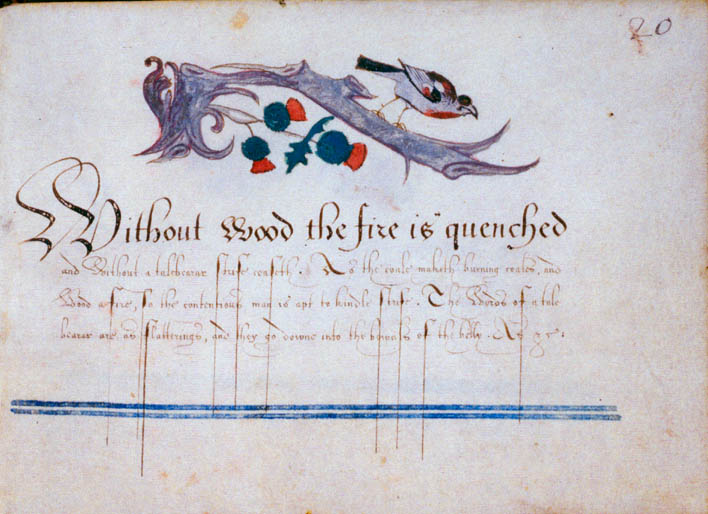 20
Without Wood the fire is quenched
and Without a talebearar strife ceaseth. As the coale maketh burning coales, and
Wood a fire, so the contentious man is apt to kindle strife. The Words of a tale
bearar are as flatterings, and they go downe into the bowells of the belly. As